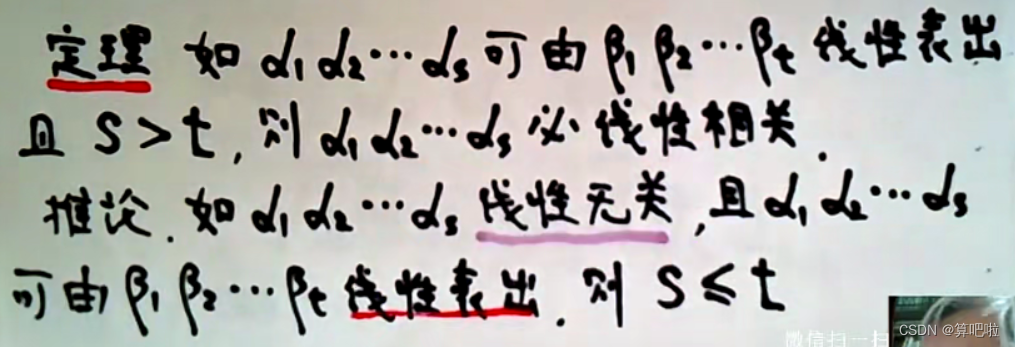 定理 如 α₁ α₂ … αₛ 可由 β₁ β₂ … βₜ 线性表出
且 s > t, 则 α₁ α₂ … αₛ 必线性相关.
推论. 如 α₁ α₂ … αₛ 线性无关, 且 α₁ α₂ … αₛ
可由 β₁ β₂ … βₜ 线性表出. 则 s ≤ t
微信扫一扫
CSDN @算吧啦